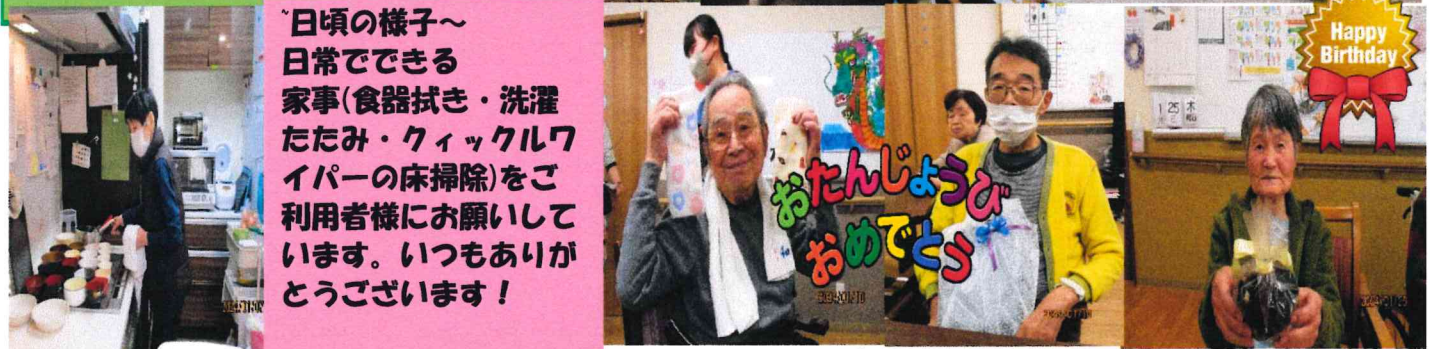 ~日頃の様子～
日常でできる
家事(食器拭き・洗濯
たたみ・クィックルワ
イパーの床掃除)をご
利用者様にお願いして
います。いつもありが
とうございます！
おたんじょうび
おめでとう
Happy
Birthday
1 25 木